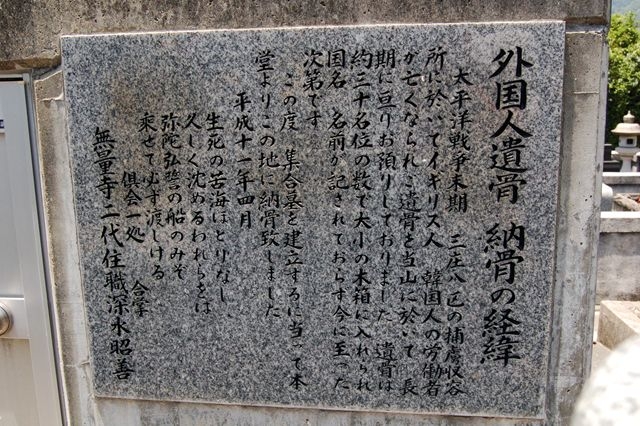 外国人遺骨 納骨の経緯
太平洋戦争末期 三庄八区の捕虜収容
所に於いてイギリス人 韓国人の労働者
が亡くなられご遺骨を当山に於いて 長
期に亘りお預りしておりました 遺骨は
約三十名位の数で大小の木箱に入れられ
国名 名前が記されておらず今に至った
次第です
この度 集合墓を建立するに当って本
堂よりこの地に納骨致しました
平成十一年四月
生死の苦海ほとりなし
久しく沈めるわれらをば
弥陀弘誓の船のみぞ
乗せて必ず渡しける
倶会一処 合掌
無量寺二代住職深水昭善